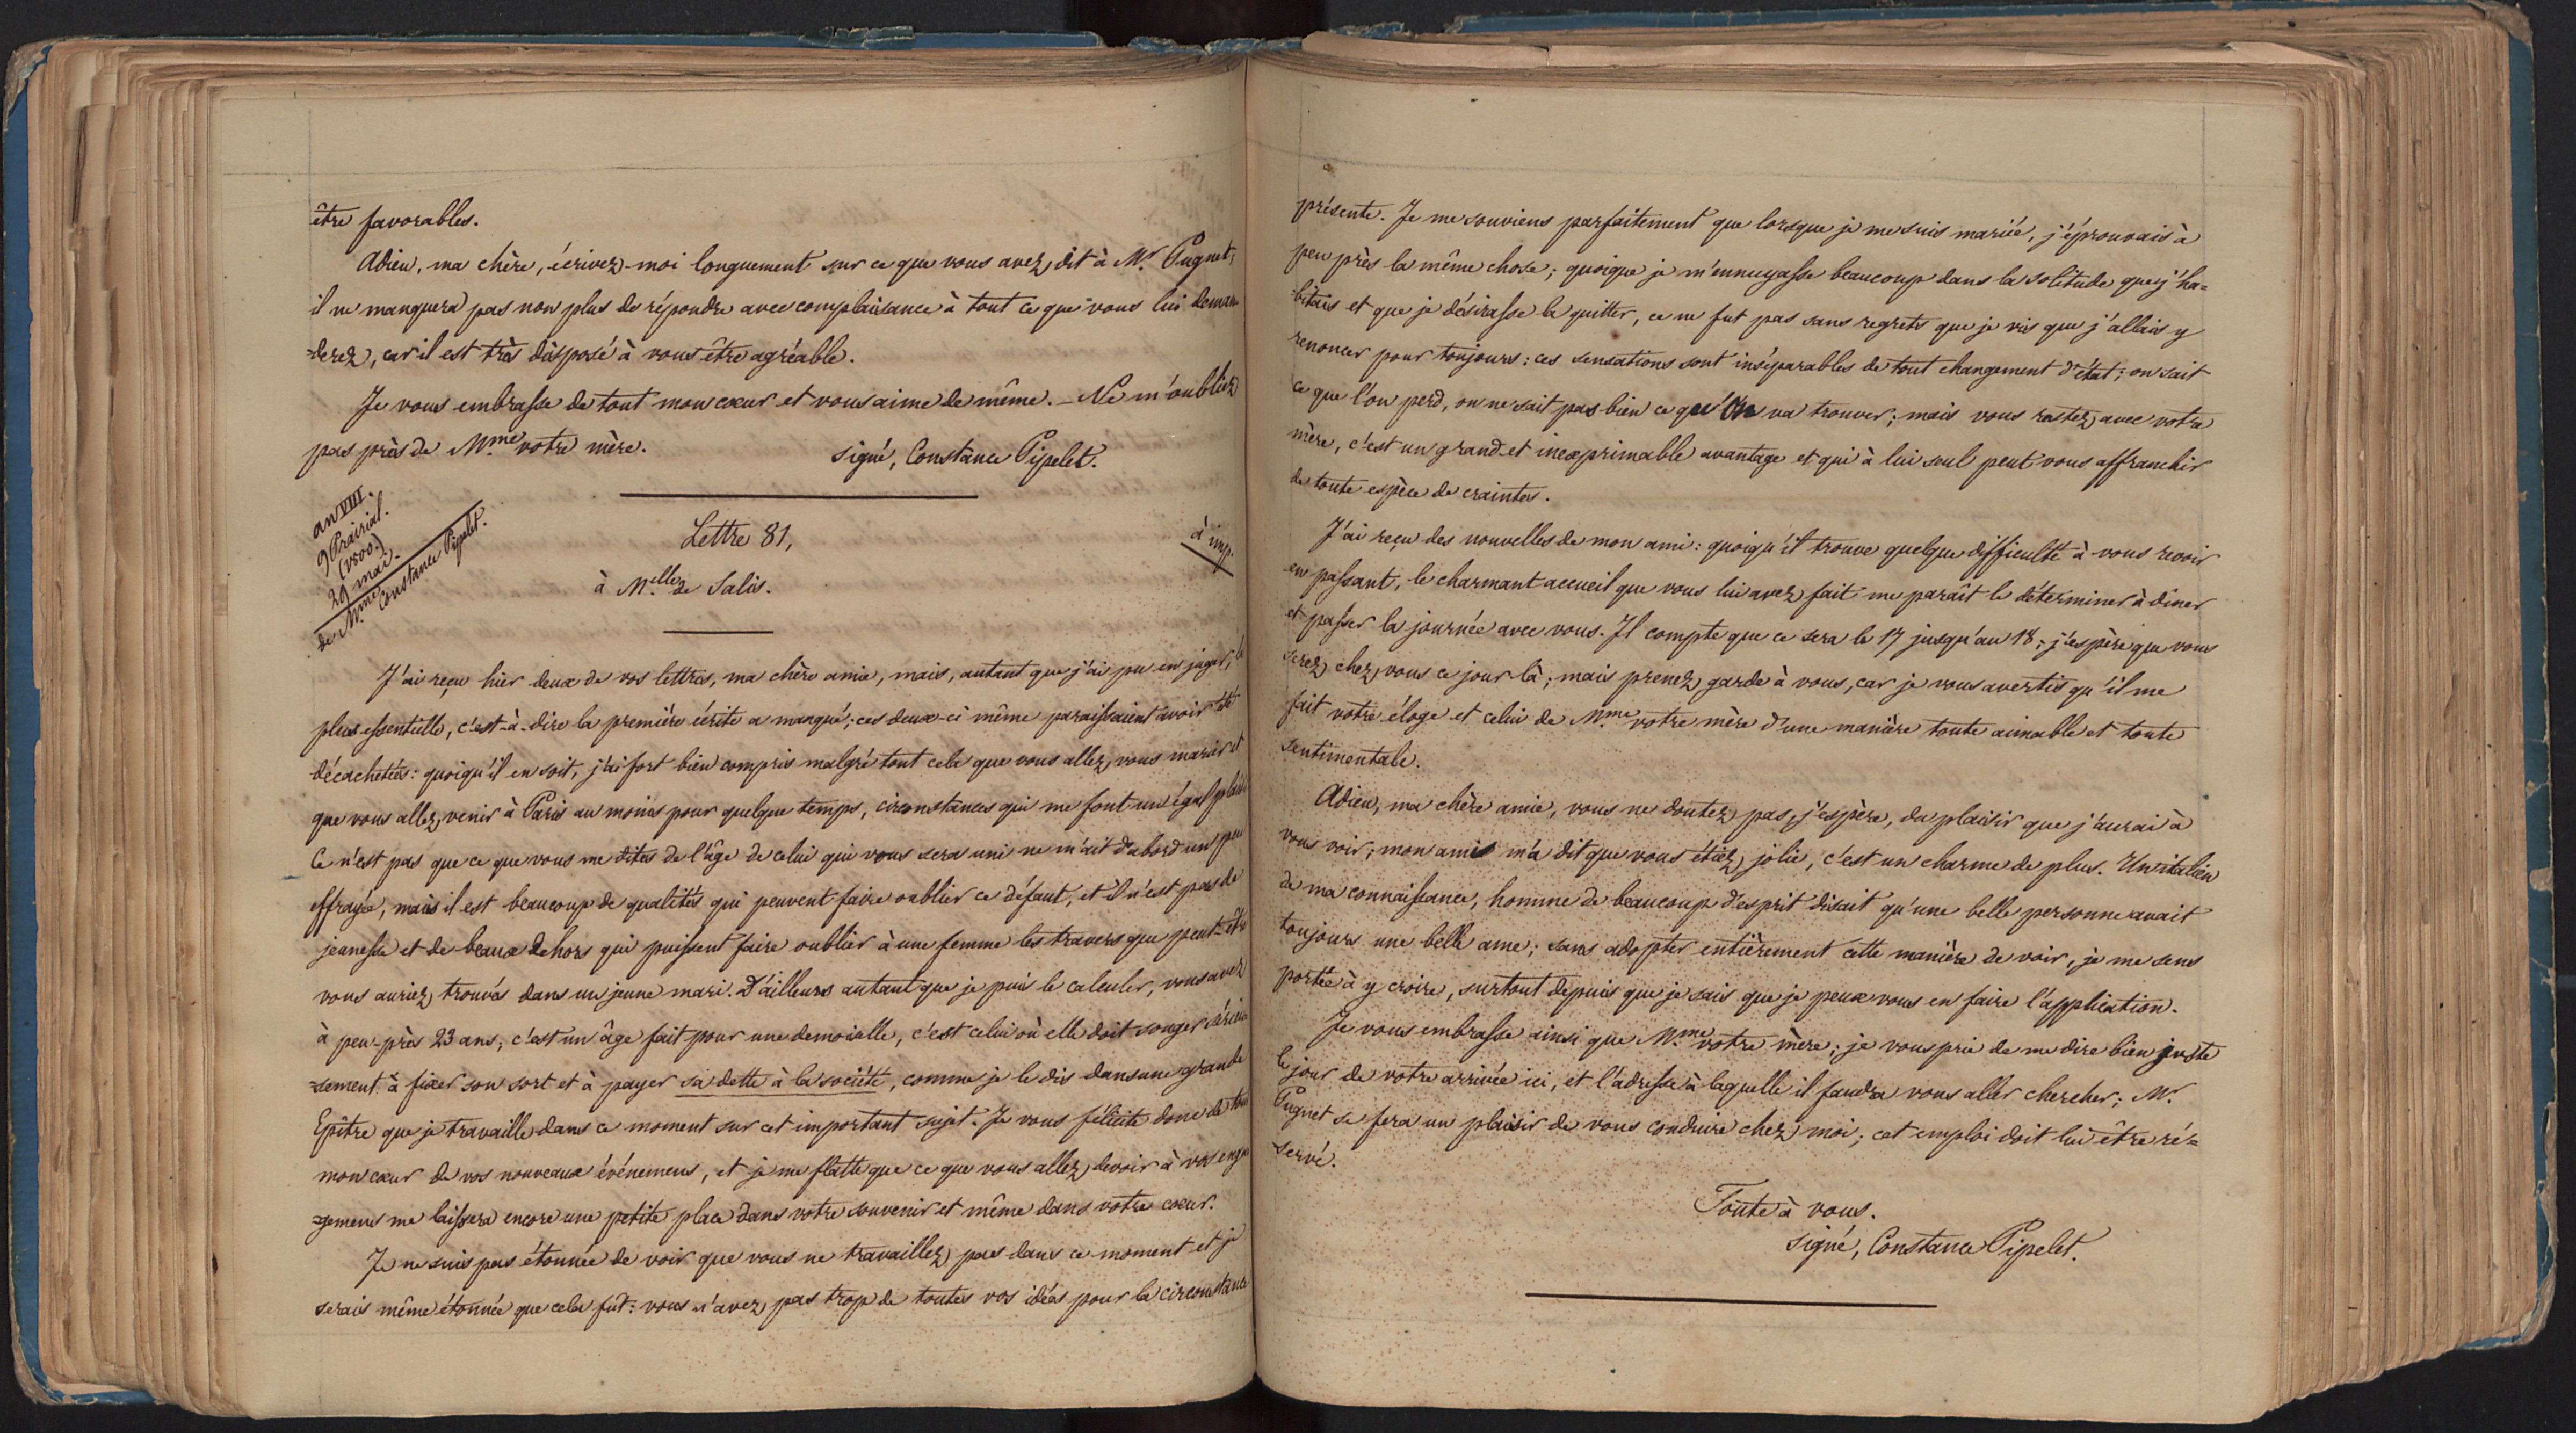 être favorables.
Adieu, ma chère, écrivez-moi longuement sur ce que vous avez dit à Mr. Pugnet;
il ne manquera pas non plus de répondre avec complaisance à tout ce que vous lui deman-
=derez, car il est très disposé à vous être agréable.
Je vous embrasse de tout mon cœur et vous aime de même. — Ne m'oubliez
pas près de Mme. votre mère.
signé, Constance Pipelet.
an VIII.
9 Prairial.
(1800.)
29 mai.
de Mme. Constance Pipelet.
Lettre 81,
à imp.
à Melle. de Salis.
J'ai reçu hier deux de vos lettres, ma chère amie, mais, autant que j'ai pu en juger, la
plus essentielle, c'est-à-dire la première écrite a manqué; ces deux-ci même paraissaient avoir été
décachetées: quoiqu'il en soit, j'ai fort bien compris malgré tout cela que vous allez vous marier et
que vous allez venir à Paris au moins pour quelque temps, circonstances qui me font un égal plaisir
Ce n'est pas que ce que vous me dites de l'âge de celui qui vous sera uni ne m'ait d'abord un peu
effrayée, mais il est beaucoup de qualités qui peuvent faire oublier ce défaut, et il n'est pas de
jeunesse et de beaux dehors qui puissent faire oublier à une femme les travers que peut-être
vous auriez trouvés dans un jeune mari. D'ailleurs autant que je puis le calculer, vous avez
à peu-près 23 ans; c'est un âge fait pour une demoiselle, c'est celui où elle doit songer sérieu
=sement à fixer son sort et à payer sa dette à la société, comme je le dis dans une grande
Epître que je travaille dans ce moment sur cet important sujet. Je vous félicite donc de tout
mon cœur de vos nouveaux événemens, et je me flatte que ce que vous allez devoir à vos enga
=gemens me laissera encore une petite place dans votre souvenir et même dans votre cœur.
Je ne suis pas étonnée de voir que vous ne travaillez pas dans ce moment et je
serais même étonnée que cela fût: vous n'avez pas trop de toutes vos idées pour la circonstance
présente. Je me souviens parfaitement que lorsque je me suis mariée, j'éprouvais à
peu près la même chose; quoique je m'ennuyasse beaucoup dans la solitude que j'ha=
=bitais et que je désirasse la quitter, ce ne fut pas sans regrets que je vis que j'allais y
renoncer pour toujours: ces sensations sont inséparables de tout changement d'état; on sait
ce que l'on perd, on ne sait pas bien ce qu'on va trouver; mais vous restez avec votre
mère, c'est un grand et inexprimable avantage et qui à lui seul peut vous affranchir
de toute espèce de craintes.
J'ai reçu des nouvelles de mon ami: quoiqu'il trouve quelque difficulté à vous revoir
en passant, le charmant accueil que vous lui avez fait me paraît le déterminer à diner
et passer la journée avec vous. Il compte que ce sera le 17 jusqu'au 18; j'espère que vous
serez chez vous ce jour là; mais prenez garde à vous, car je vous avertis qu'il me
fait votre éloge et celui de Mme. votre mère d'une manière toute aimable et toute
sentimentale.
Adieu, ma chère amie, vous ne doutez pas, j'espère, du plaisir que j'aurai à
vous voir; mon ami m'a dit que vous étiez jolie, c'est un charme de plus. Un italien
de ma connaissance, homme de beaucoup d'esprit disait qu'une belle personne avait
toujours une belle ame; sans adopter entièrement cette manière de voir, je me sens
portée à y croire, surtout depuis que je sais que je peux vous en faire l'application.
Je vous embrasse ainsi que Mme. votre mère; je vous prie de me dire bien juste
le jour de votre arrivée ici, et l'adresse à laquelle il faudra vous aller chercher; Mr.
Pugnet se fera un plaisir de vous conduire chez moi; cet emploi doit lui être ré=
servé.
Toute à vous.
signé, Constance Pipelet.